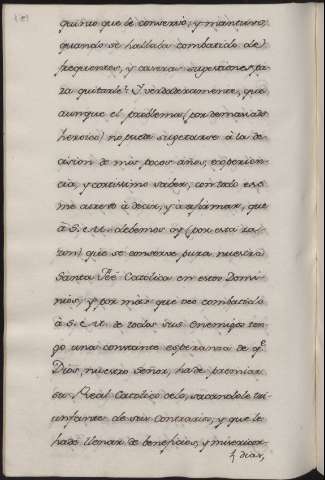 quinto que le conservò, y mantuvo,
quando se hallaba combatido de
frequentes, y caseras sugestiones pa-
ra quitarle? Y verdaderamente, que
aunque el problema (por demasiado
heroico) no puede sugetarse à la de-
cision de mis pocos años, experien-
cia, y cortissimo saber, con todo eso
me atrevo à decir, y à afirmar, que
à S. e V. debemos oy (por esta ra-
zon) que se conserve pura nuestra
Santa Feè Catolica en estos Domi-
nios; y por màs que veo combatido
à S. e V. de todos sus enemigos ten-
go una constante esperanza de q.e
Dios, nuestro Señor, ha de premiar
su Real Catolico celo, sacandole tri-
unfante de seis Contrarios, y que le
hade llenar de beneficios, y misericor-
dias,